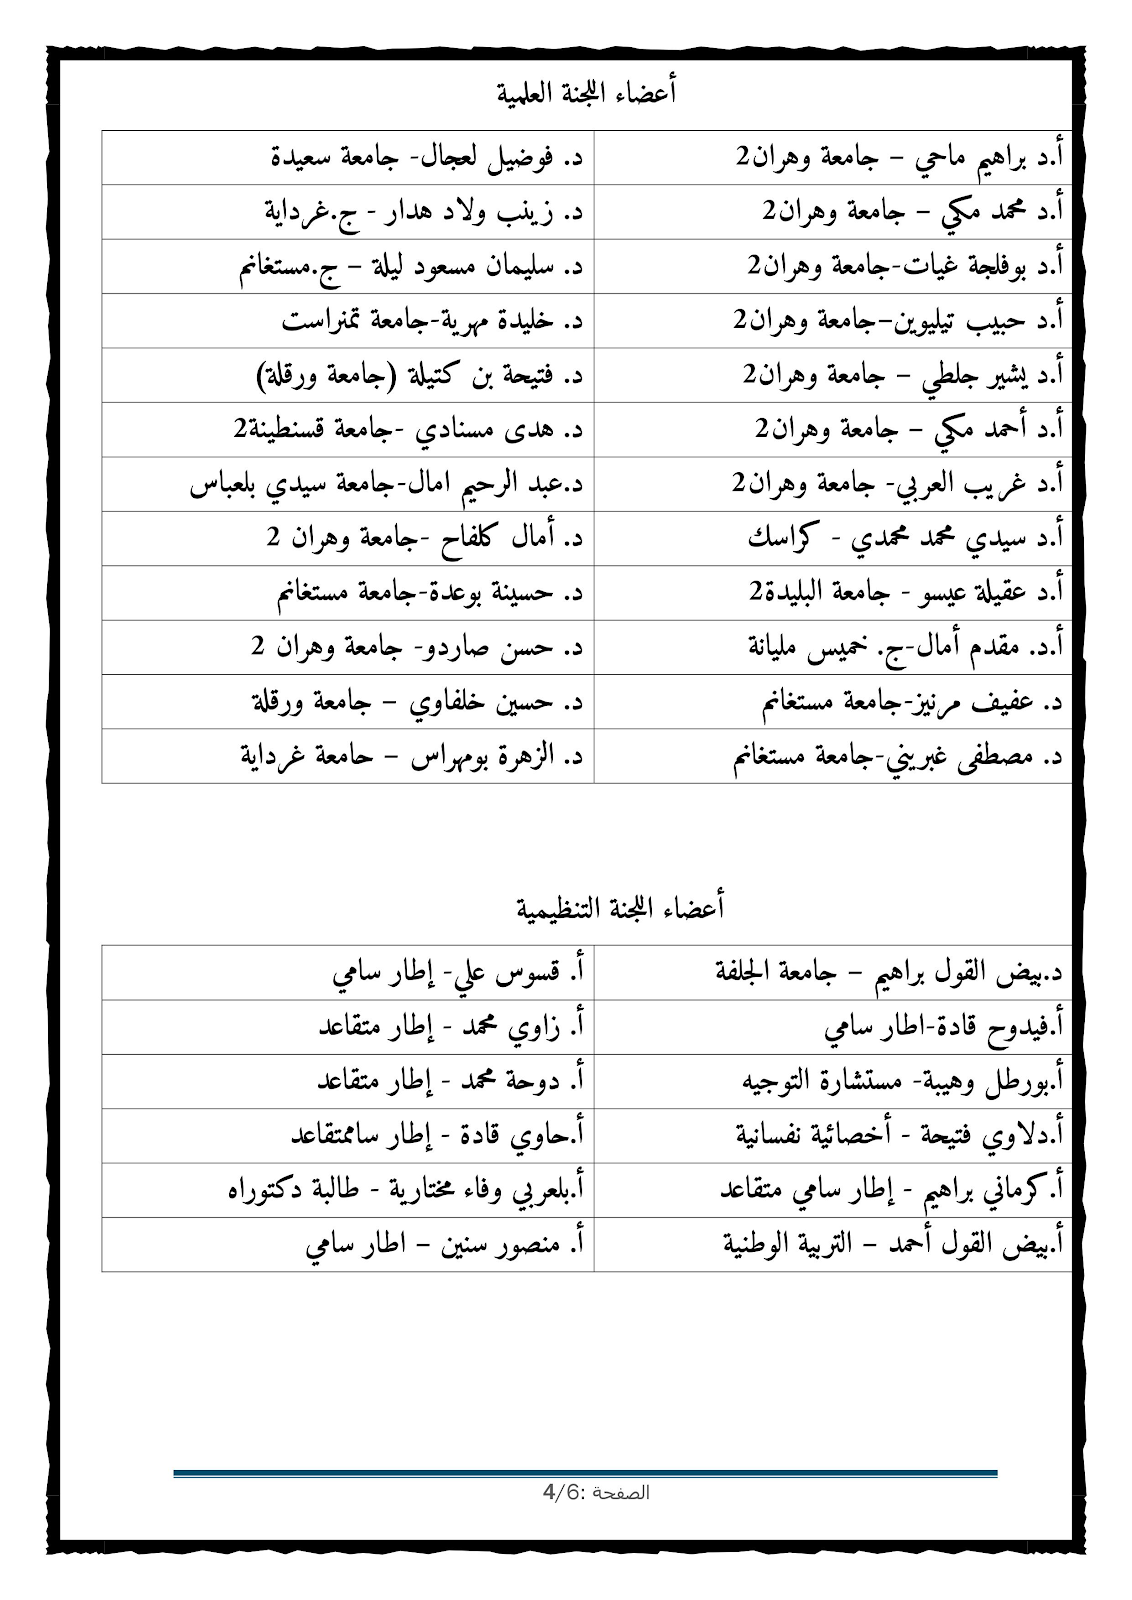 أعضاء اللجنة العلمية
أ.د براهيم ماحي – جامعة وهران2
د. فوضيل لعجال- جامعة سعيدة
أ.د محمد مكي – جامعة وهران2
د. زينب ولاد هدار - ج.غرداية
أ.د بوفلجة غيات-جامعة وهران2
د. سليمان مسعود ليلة – ج.مستغانم
أ.د حبيب تيليوين–جامعة وهران2
د. خليدة مهرية-جامعة تمنراست
أ.د يشير جلطي – جامعة وهران2
د. فتيحة بن كتيلة (جامعة ورقلة)
أ.د أحمد مكي – جامعة وهران2
د. هدى مسنادي -جامعة قسنطينة2
أ.د غريب العربي- جامعة وهران2
د.عبد الرحيم امال-جامعة سيدي بلعباس
أ.د سيدي محمد محمدي - كراسك
د. أمال كلفاح -جامعة وهران 2
أ.د عقيلة عيسو - جامعة البليدة2
د. حسينة بوعدة-جامعة مستغانم
أ.د. مقدم أمال-ج. خميس مليانة
د. حسن صاردو- جامعة وهران 2
د. عفيف مرنيز-جامعة مستغانم
د. حسين خلفاوي – جامعة ورقلة
د. مصطفى غبريني-جامعة مستغانم
د. الزهرة بومهراس – حامعة غرداية
أعضاء اللجنة التنظيمية
د.بيض القول براهيم – جامعة الجلفة
أ. قسوس علي- إطار سامي
أ.فيدوح قادة-اطار سامي
أ. زاوي محمد - إطار متقاعد
أ.بورطل وهيبة- مستشارة التوجيه
أ. دوحة محمد - إطار متقاعد
أ.دلاوي فتيحة - أخصائية نفسانية
أ.حاوي قادة - إطار ساممتقاعد
أ.كرماني براهيم - إطار سامي متقاعد
أ.بلعربي وفاء مختارية - طالبة دكتوراه
أ.بيض القول أحمد – التربية الوطنية
أ. منصور سنين – اطار سامي
الصفحة :4/6